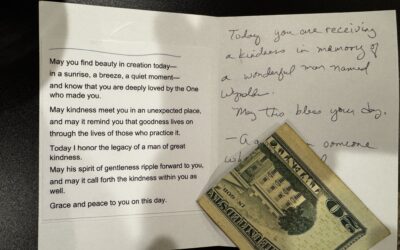 May you find beauty in creation today—
in a sunrise, a breeze, a quiet moment—
and know that you are deeply loved by the One
who made you.
May kindness meet you in an unexpected place,
and may it remind you that goodness lives on
through the lives of those who practice it.
Today I honor the legacy of a man of great
kindness.
May his spirit of gentleness ripple forward to you,
and may it call forth the kindness within you as
well.
Grace and peace to you on this day.
Today you are receiving
a kindness in memory of
a wonderful man named
May this bless your day.
someone
20